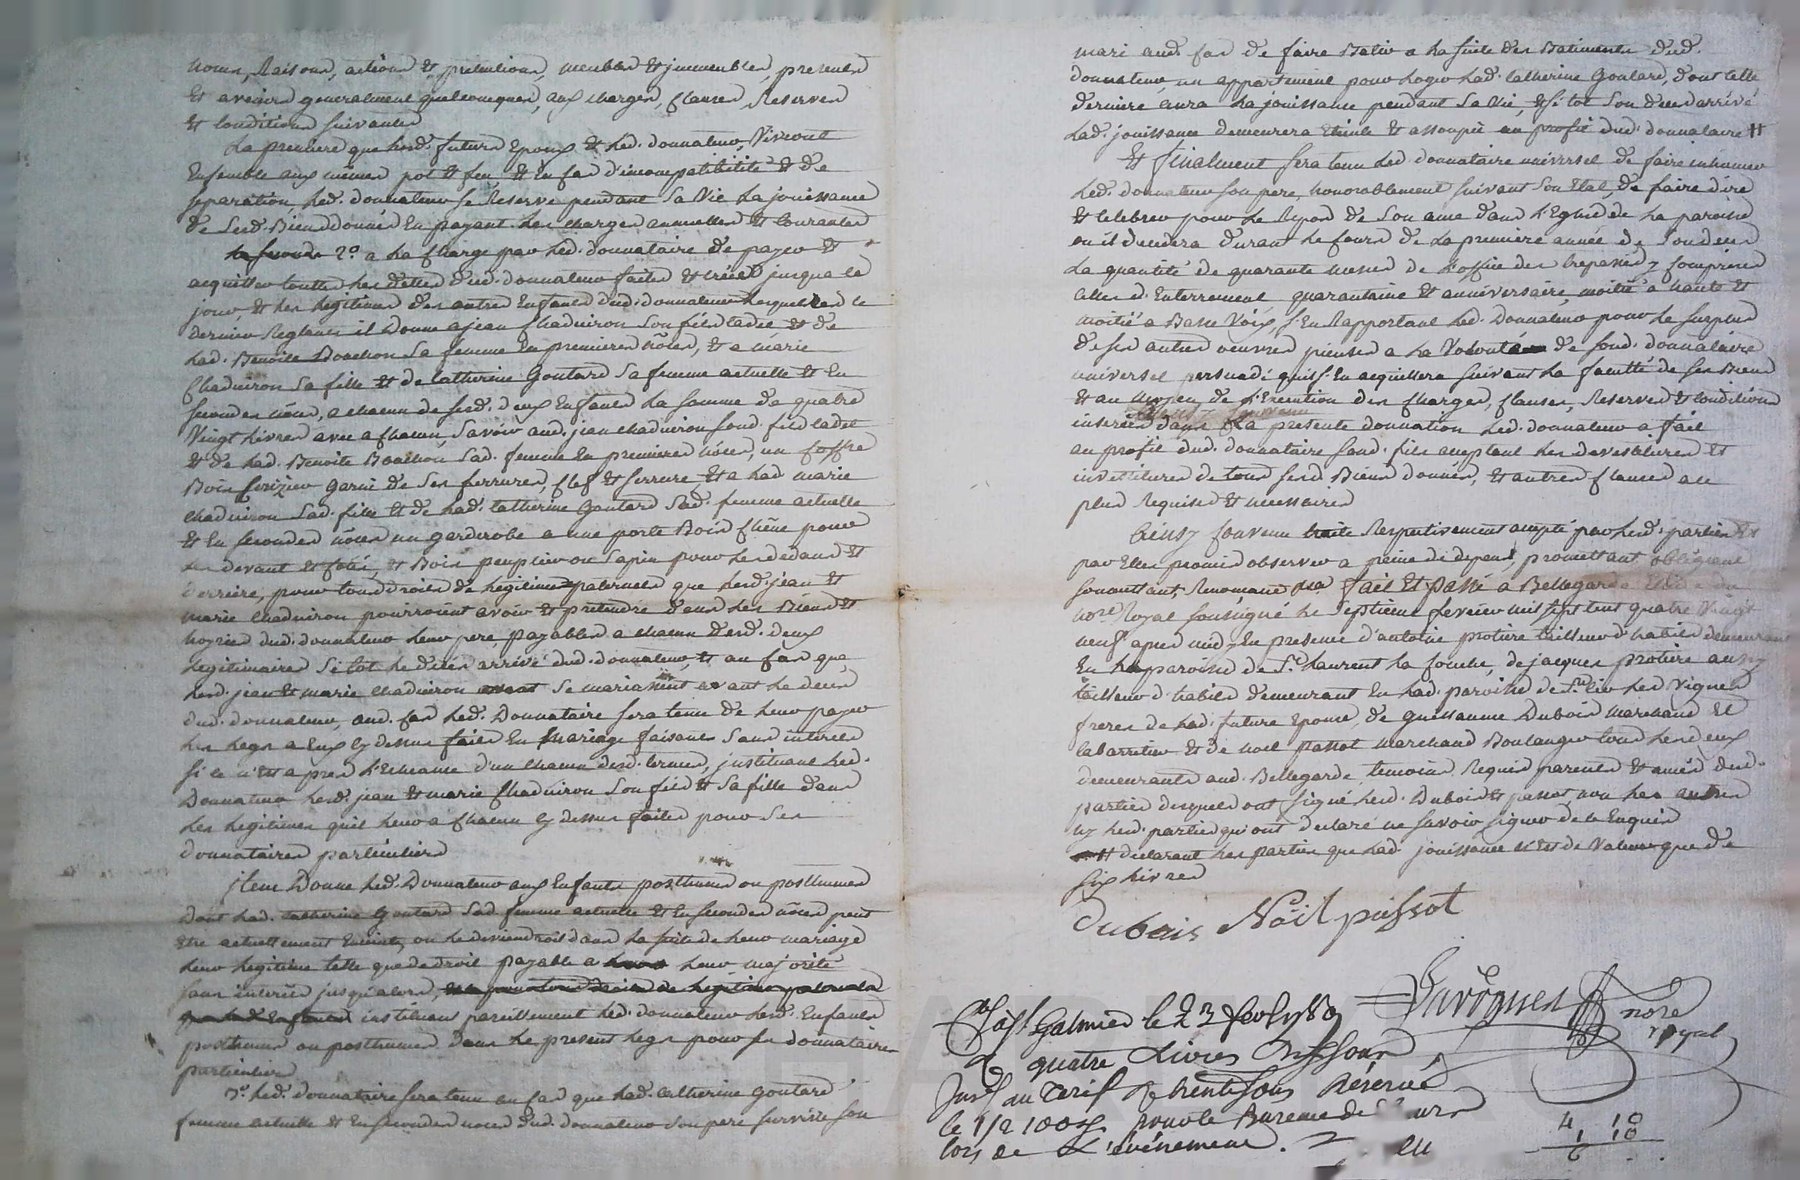 noms, Raisons, actions et pretentions, meubles et jmmeubles, presents
et avenirs generalment quelconques, aux charges, clauses, Reserves
et Conditions suivantes
La premiere que lesd. futurs Epoux et led. donnateur, Vivront
Ensemble aux mêmes pot et feu, et En cas d'incompatibilité et de
separation, led. donnateur se Reserve pendant sa Vie la jouissance
de sesd. Biens donnés En payant les charges annuelles et Courantes
2°. a la charge par led. donnataire de payer et
acquitter touttes les dettes dud. donnateur faites et créées jusqu'a ce
jour, et les legitimes des autres Enfants dud. donnateur lesquelles ce
dernier Reglant il Donne a jean Chadviron Son fils cadet et de
lad. Benoite Bouchon Sa femme En premieres nôces, et a marie
Chadviron sa fille et de Catherine Goutard Sa femme actuelle et En
secondes nôces, a chacun de sesd. deux Enfants la somme de quatre
Vingt livres avec a chacun, Savoir aud. jean chadviron sond. fils cadet
et de lad. Benoite Bouchon Sad. femme En premieres nôces, un Coffre
Bois Cerizier garni de ses ferrures, Clef et serrure, et a lad. marie
chadviron Sad. fille et de lad. Catherine Goutard Sad. femme actuelle
et En secondes nôces un garderobe a une porte Bois Chêne pour
les devant et Cotés, et Bois peuplier ou Sapin pour les dedans et
derriere, pour tous droits de legitimes paternels que lesd. jean et
marie Chadviron pourroient avoir et pretendre dans les Biens et
hoyrie dud. donnateur leur pere, payables a chacun desd. deux
legitimaires Si tot le décès arrivé dud. donnateur, et au Cas que
lesd. jean et marie Chadviron Se mariassent avant le décès
dud. donnateur, aud. Cas led. Donnataire sera tenu de leur payer
les legs a Eux cy dessus faits En Mariage faisants Sans interêts
Si ce n'est apres l'Echeance d'un chacun desd. termes, jnstituant led.
Donnateur lesd. jean et marie Chadviron Son fils et Sa fille dans
les legitimes qu'il leur a chacun cy dessus faites pour Ses
donnataires particuliers
jtem Donne led. Donnateur aux Enfants posthumes ou posthumes
dont lad. Catherine Goutard Sad. femme actuelle et En secondes nôces peut
être actuellement Enceinte, ou le deviendroit dans la suite de leur mariage
leur legitime telle que de droit payable a leur majorité
sans interêts jusqu'alors, instituant pareillement led. donnateur lesd. Enfants
posthumes ou posthumes dans le present legs pour ses donnataires
particuliers
3°. led. donnataire sera tenu au Cas que lad. Catherine Goutard
femme actuelle et En secondes nôces dud. donnateur Son pere survive Son
mari aud. Cas de faire Batir a la suite des Batiments dud.
donnateur, un appartement pour loger lad. Catherine Goutard, dont cette
derniere aura la jouissance pendant Sa Vie, et si tot Son décès arrivé
lad. jouissance demeurera Eteinte et assoupie au profit dud. donnataire #
Et finalment Sera tenu led. donnataire universel de faire inhumer
led. donnateur son pere, honorablement suivant Son Etat, de faire dire
et Celebrer pour le Repos de Son ame dans l'Eglise de la paroisse
ou il decedera durant le Cours de la premiere année de Son décès
la quantité de quarante messes de l'office des trepassés, y Comprises
celles d'Enterrement quarantaine et anniversaire, moitié a haute et
moitié a Basse Voix, s'En Rapportant led. Donnateur pour le surplus
de ses autres œuvres pieuses a la Volonté de sond. donnataire
universel persuadé qu'il s'En acquittera suivant la faculté de ses Biens
et au moyen de l'Execution des Charges, Clauses, Reserves et Conditions
inserées dans la presente donnation led. donnateur a fait
au profit dud. donnataire sond. fils acceptant les devestitures et
investitures de tous sesd. Biens donnés, et autres Clauses au
plus Requises et necessaires
Ainsy Convenu Respectivement accepté par lesd. parties et
par Elles promis observer a peine de depens, promettant obligeant
soumettant, Renonçant fait Et Passé a Bellegarde
no.re Royal soussigné le septieme fevrier mil sept cent quatre Vingt
neuf apres midy En presence d'antoine protiere tailleur d'habits demeurant
En la paroisse de S.t laurent la Conche, de jacques protiere aussy
tailleur d'habits demeurant En lad. paroisse de S.t Cir les Vignes
freres de lad. future Epouse, de guillaume Dubois Marchand et
Cabarretier et de noel passot marchand Boulanger tous les deux
demeurants aud. Bellegarde temoins Requis parents et amis dud.
parties desquels ont signé lesd. Dubois et passot, non les autres
ny lesd. parties qui ont declaré ne savoir signer de ce Enquis
# declarant les parties que lad. jouissance n'est de Valeur que de
six livres
Dubois Nöil passot
Duvögnes no.re
royal
C.lé a S.t Galmier le 23 fev. 1789
R. quatre Livres dix sous
au tarif & trente sous Réservé
le 1/2 100.e pour le Bureau de
lors de L'événement.
4 10
1 10
6